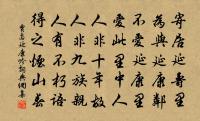 寄居延壽里
為與延康鄰
不愛延康里
愛此里中人
人非十年故
人非九族親
人有不朽語
得之煙山春
賈島延康吟 詞典網集